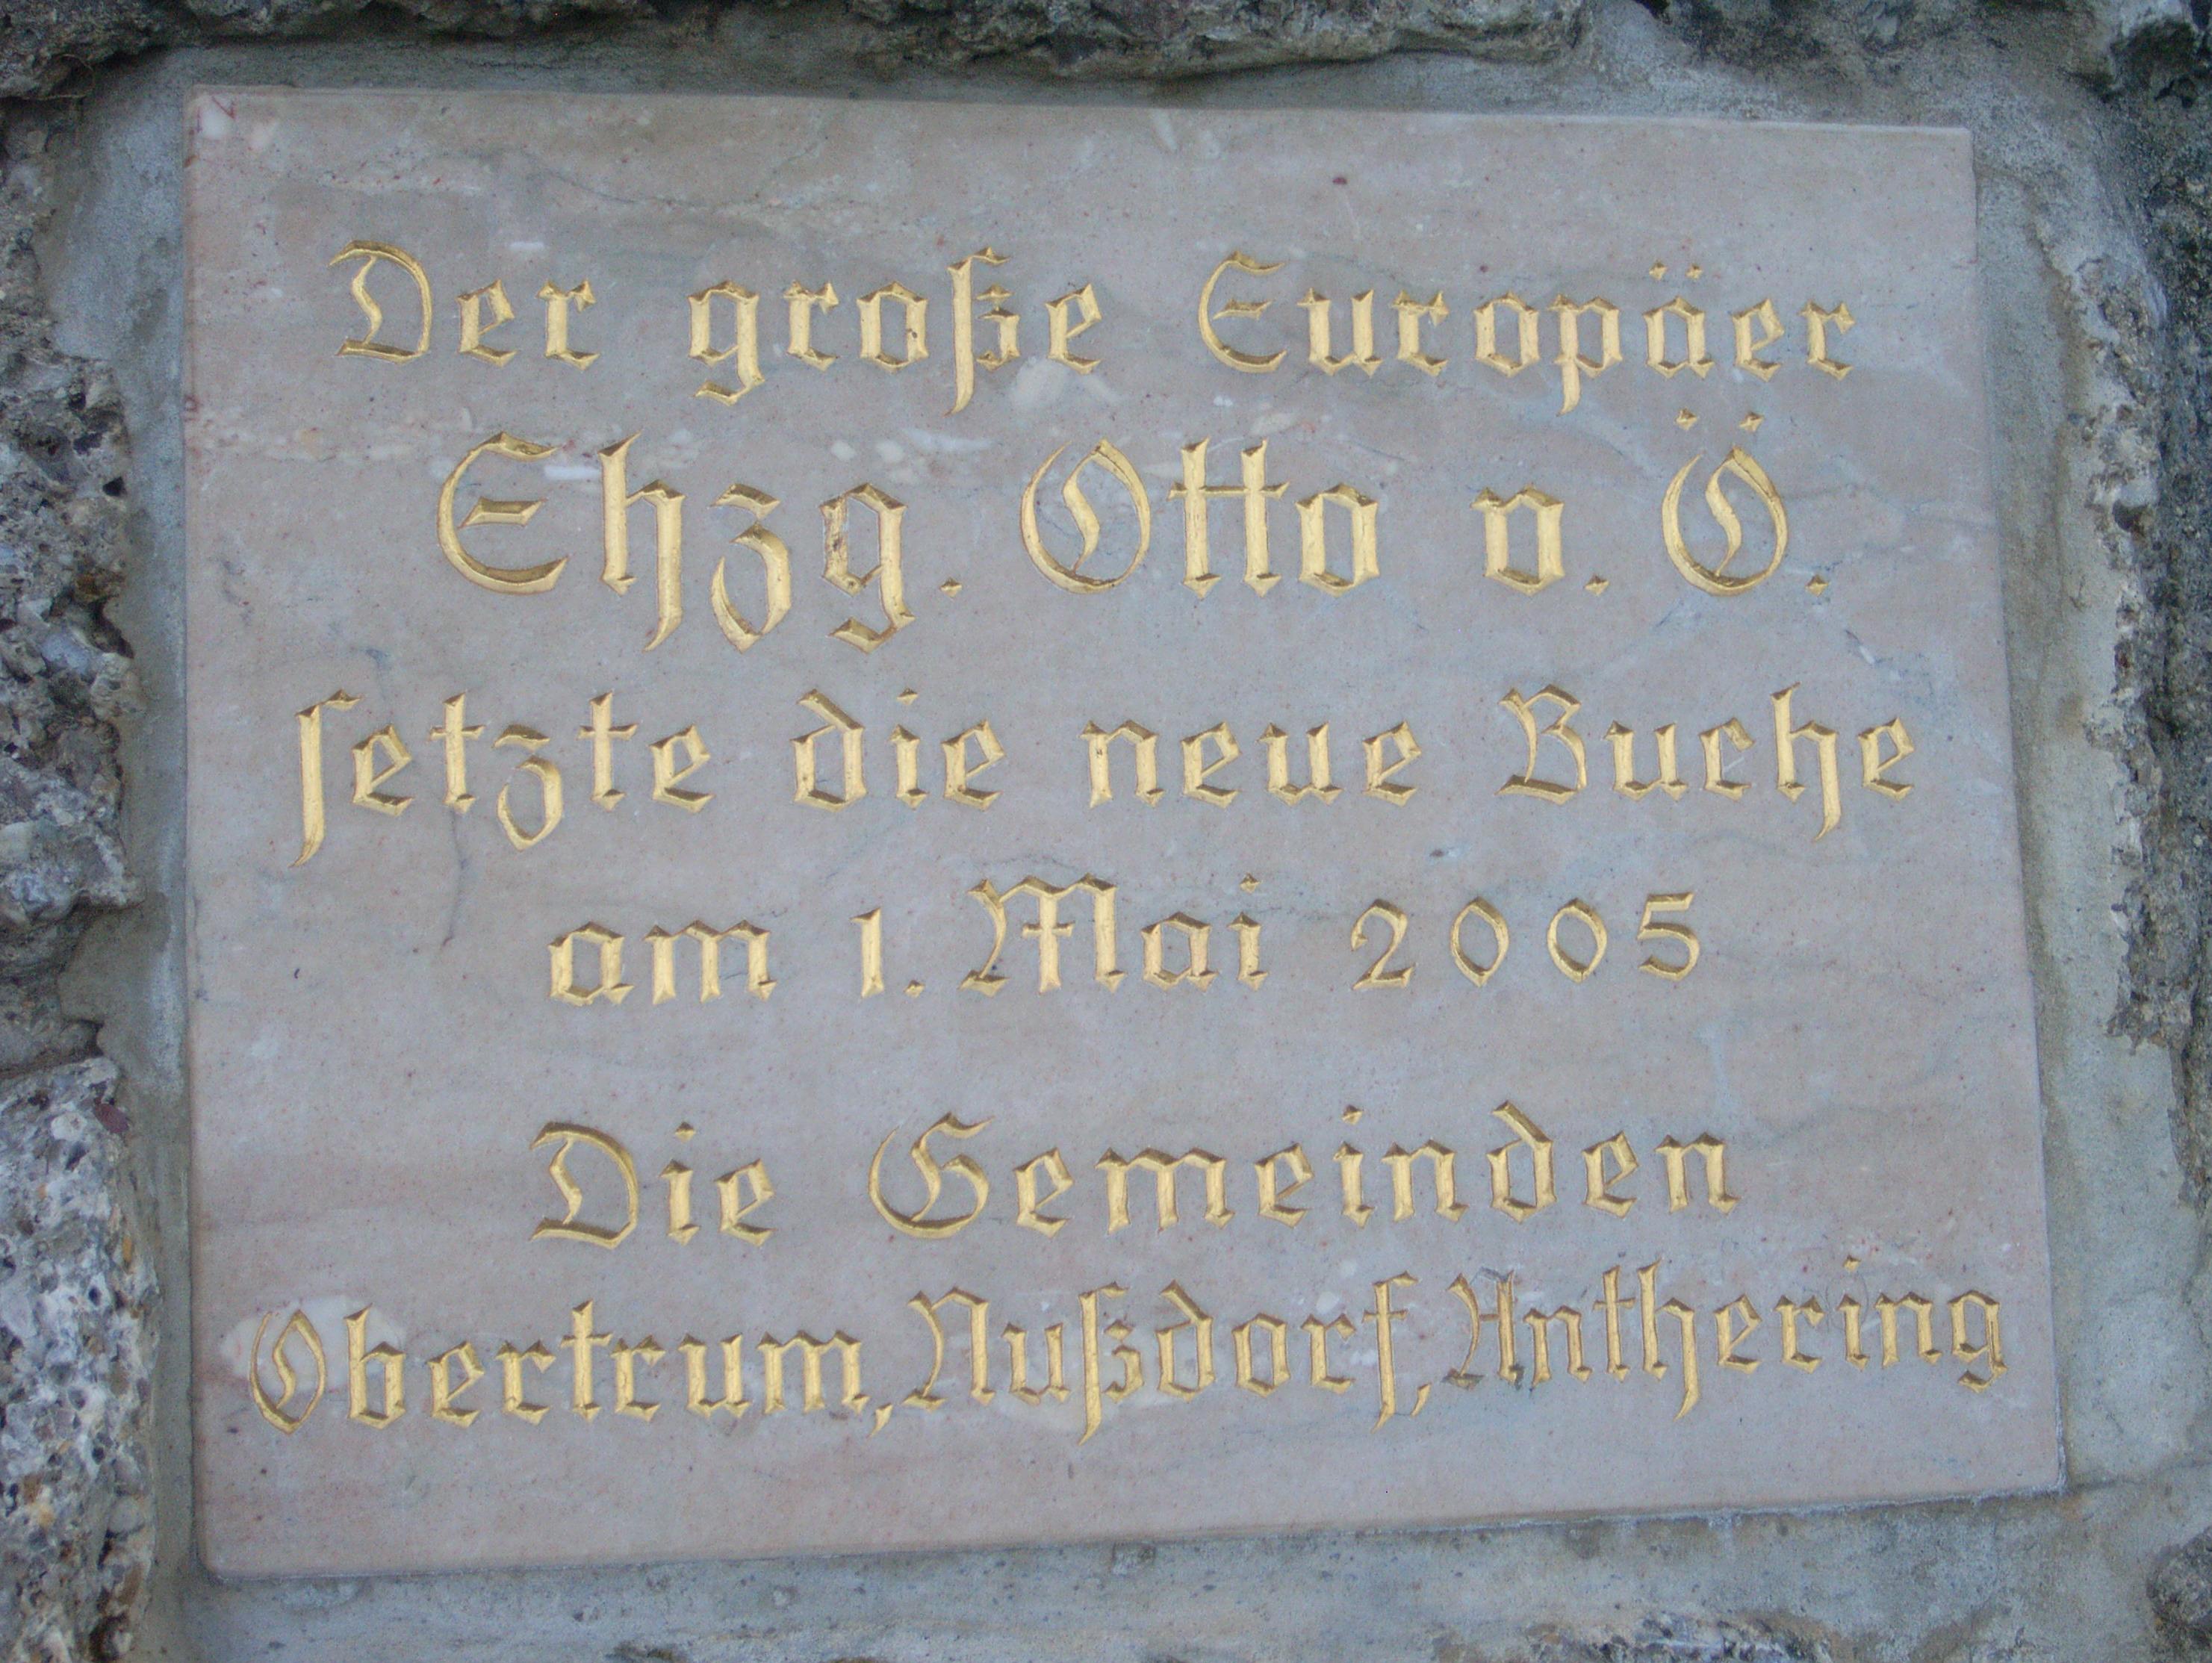 Der große Europäer
Ehzg. Otto v. Ö.
setzte die neue Buche
am 1. Mai 2005
Die Gemeinden
Obertrum, Nußdorf, Anthering